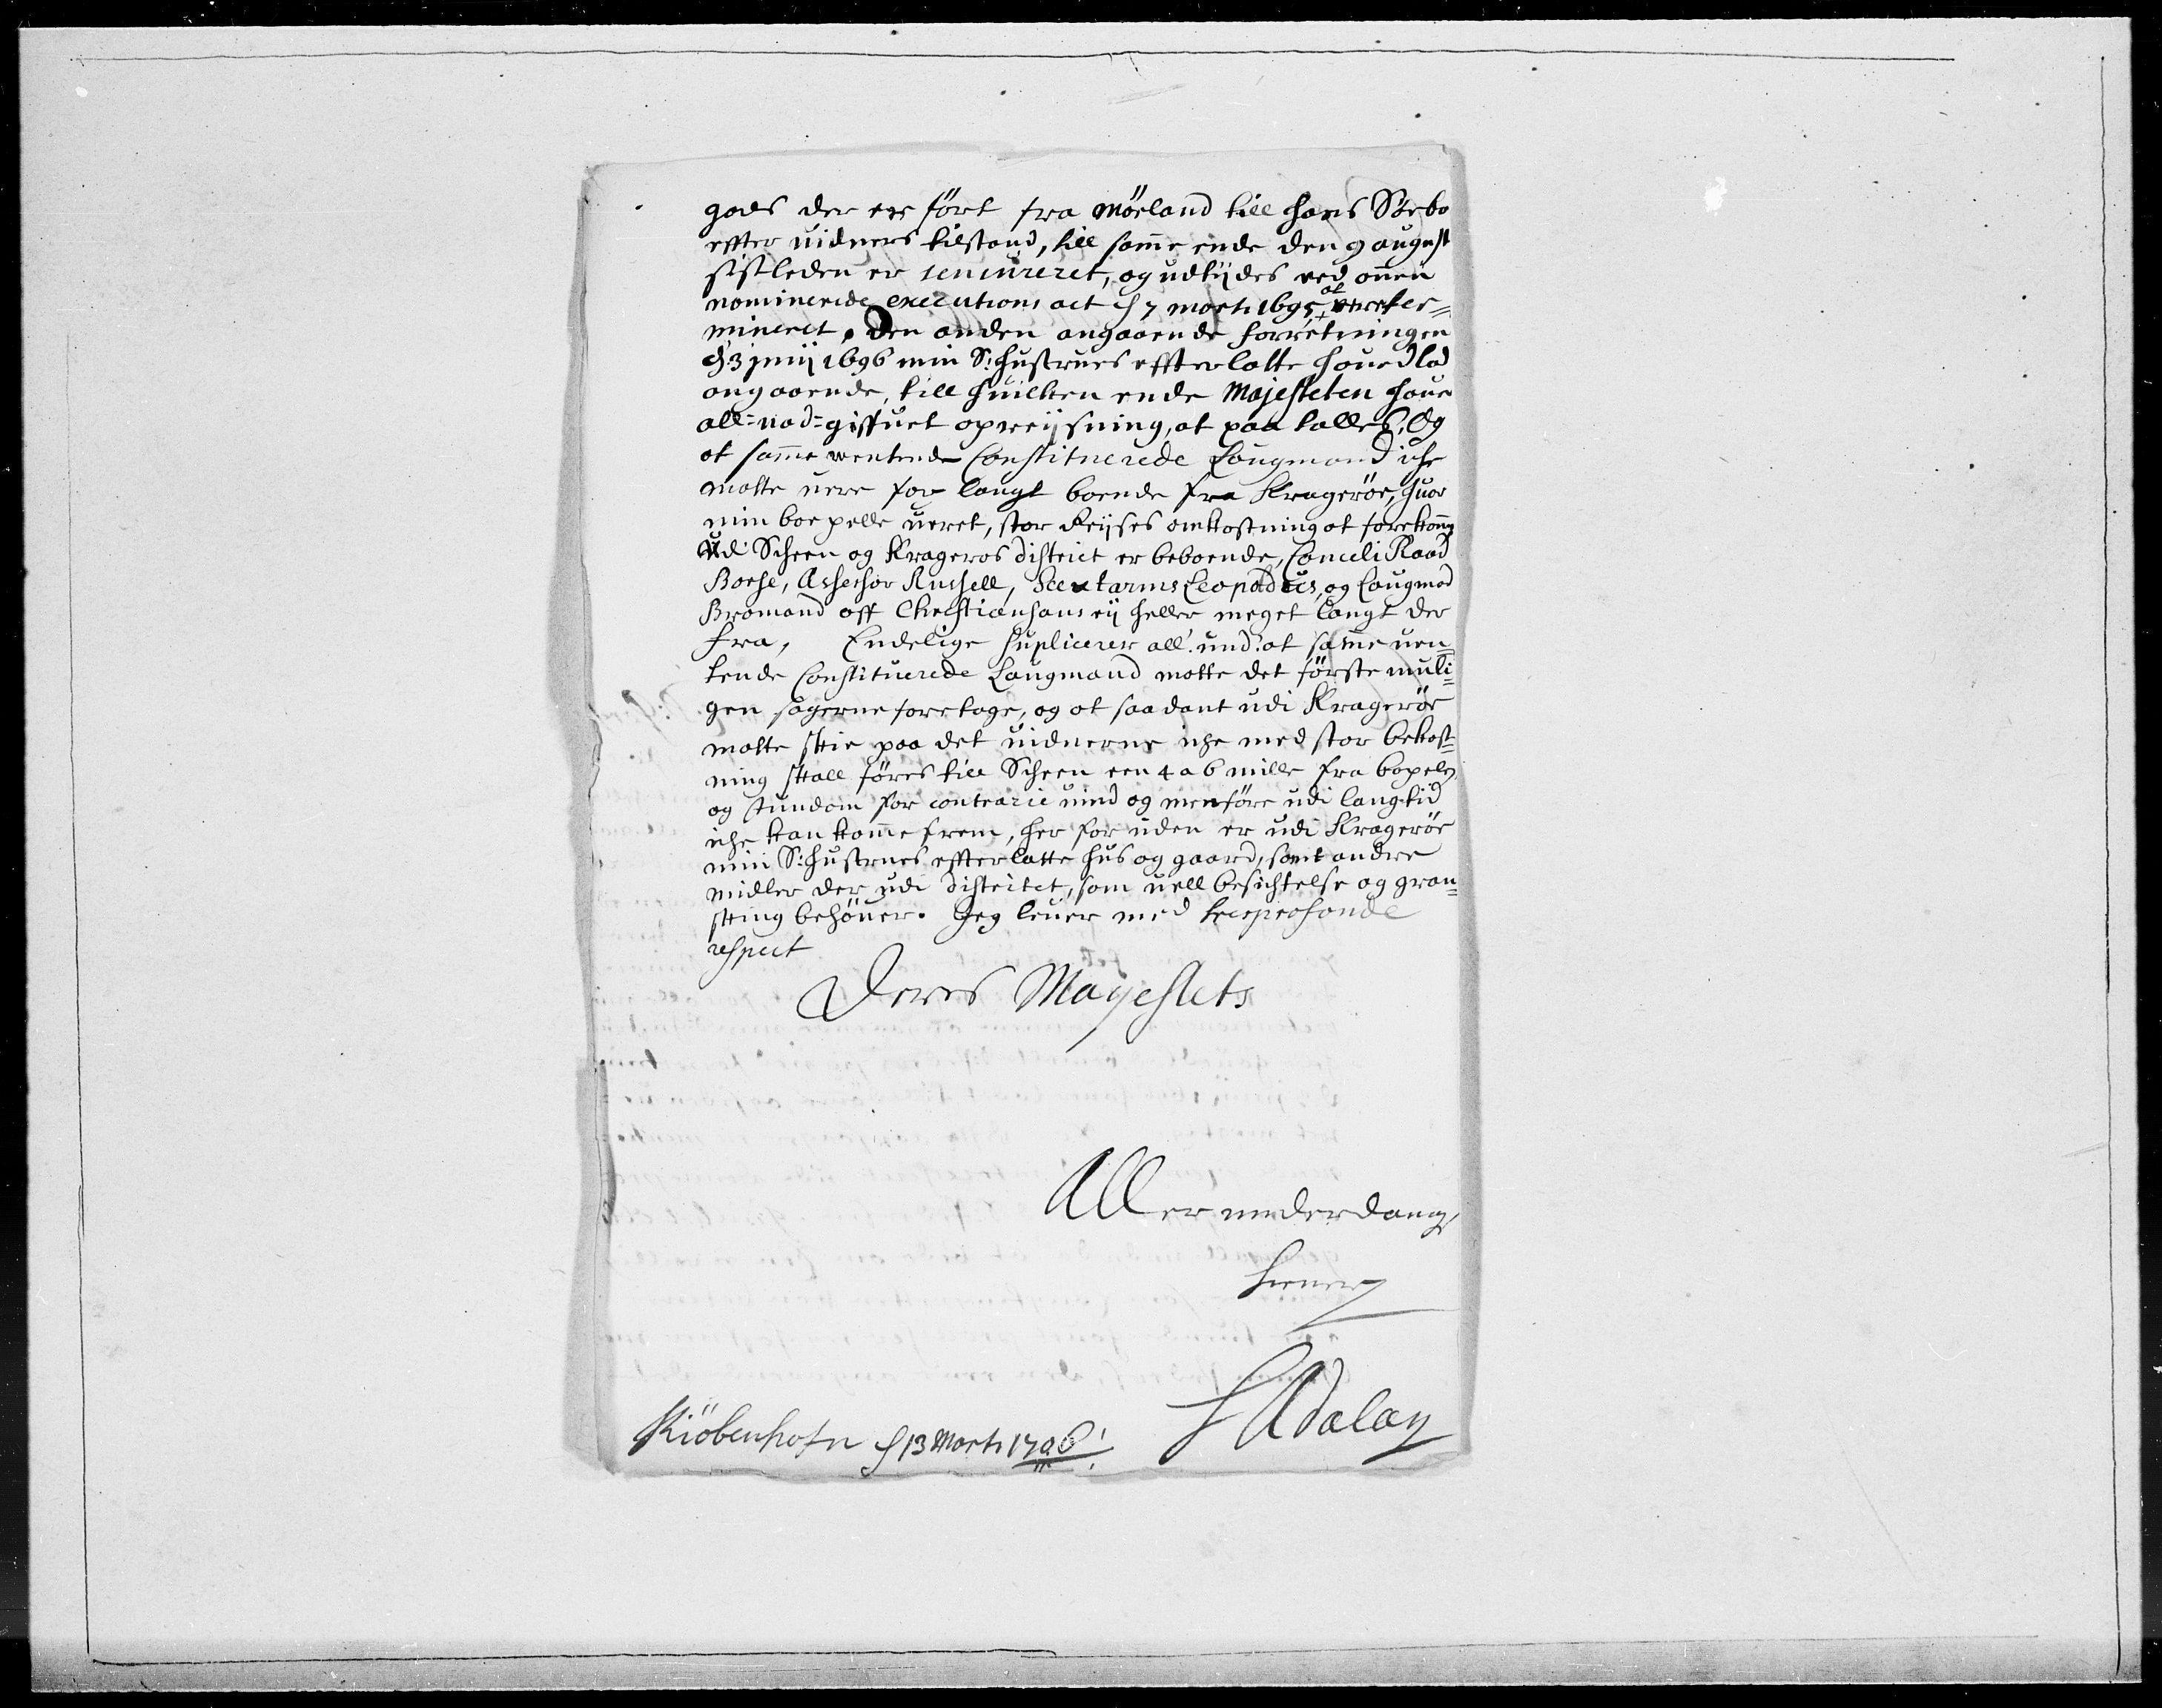 gods der er fört fra Mörland till hans Sörbo
effter uidners tilstand, till samme ende den 9 augusti
sistleden er og udtydes ved onen
nominerede executions act d 7 marti 1695 at
mineret. Den anden angaaende forretningen
d 3 junij 1696 min S: hustrues effterlatte houedlod
angaaende, till huilken ende Majesteten haue
all=naad=giffuet opreijsning, at paa talles. Og
at samme ventende Constituerede Laugmand iche
motte uere for langt boende fra Krageröe, huor
min boe pelle ueret, stor Reijses omkostning at forekomme
Udi Scheen og Krageros District er beboende, Canceli Raad
Boese, Assessor Russell, Secretarius Leopoldus, og Laugmad
Bromand off Christianhans eij heller meget langt der
fra, Endelige supliceres all: und: at samme uen=
tende Constituerede Laugmand motte det förste muli=
gen sagerne foretage, og at saadant udi Kragerör
motte skie paa det uidnerne iche med stor bekost=
ning skall föres till Scheen een 4 a 6 mille fra bopelen,
og stundom for contrarie uind og menföre udi lang tid
iche kan komme frem, her for uden er udi Kragerör
min S: hustrues effterlatte hus og gaard, samt andre
midler der udi districtet, som uell besichtelse og gran=
skning behöuer. Jeg leuer med treeprofonde
respect
Deres Mayestets
Aller underdanigs
tiener
H Adolay
Kiöbenhafn d 13 Marti 1706